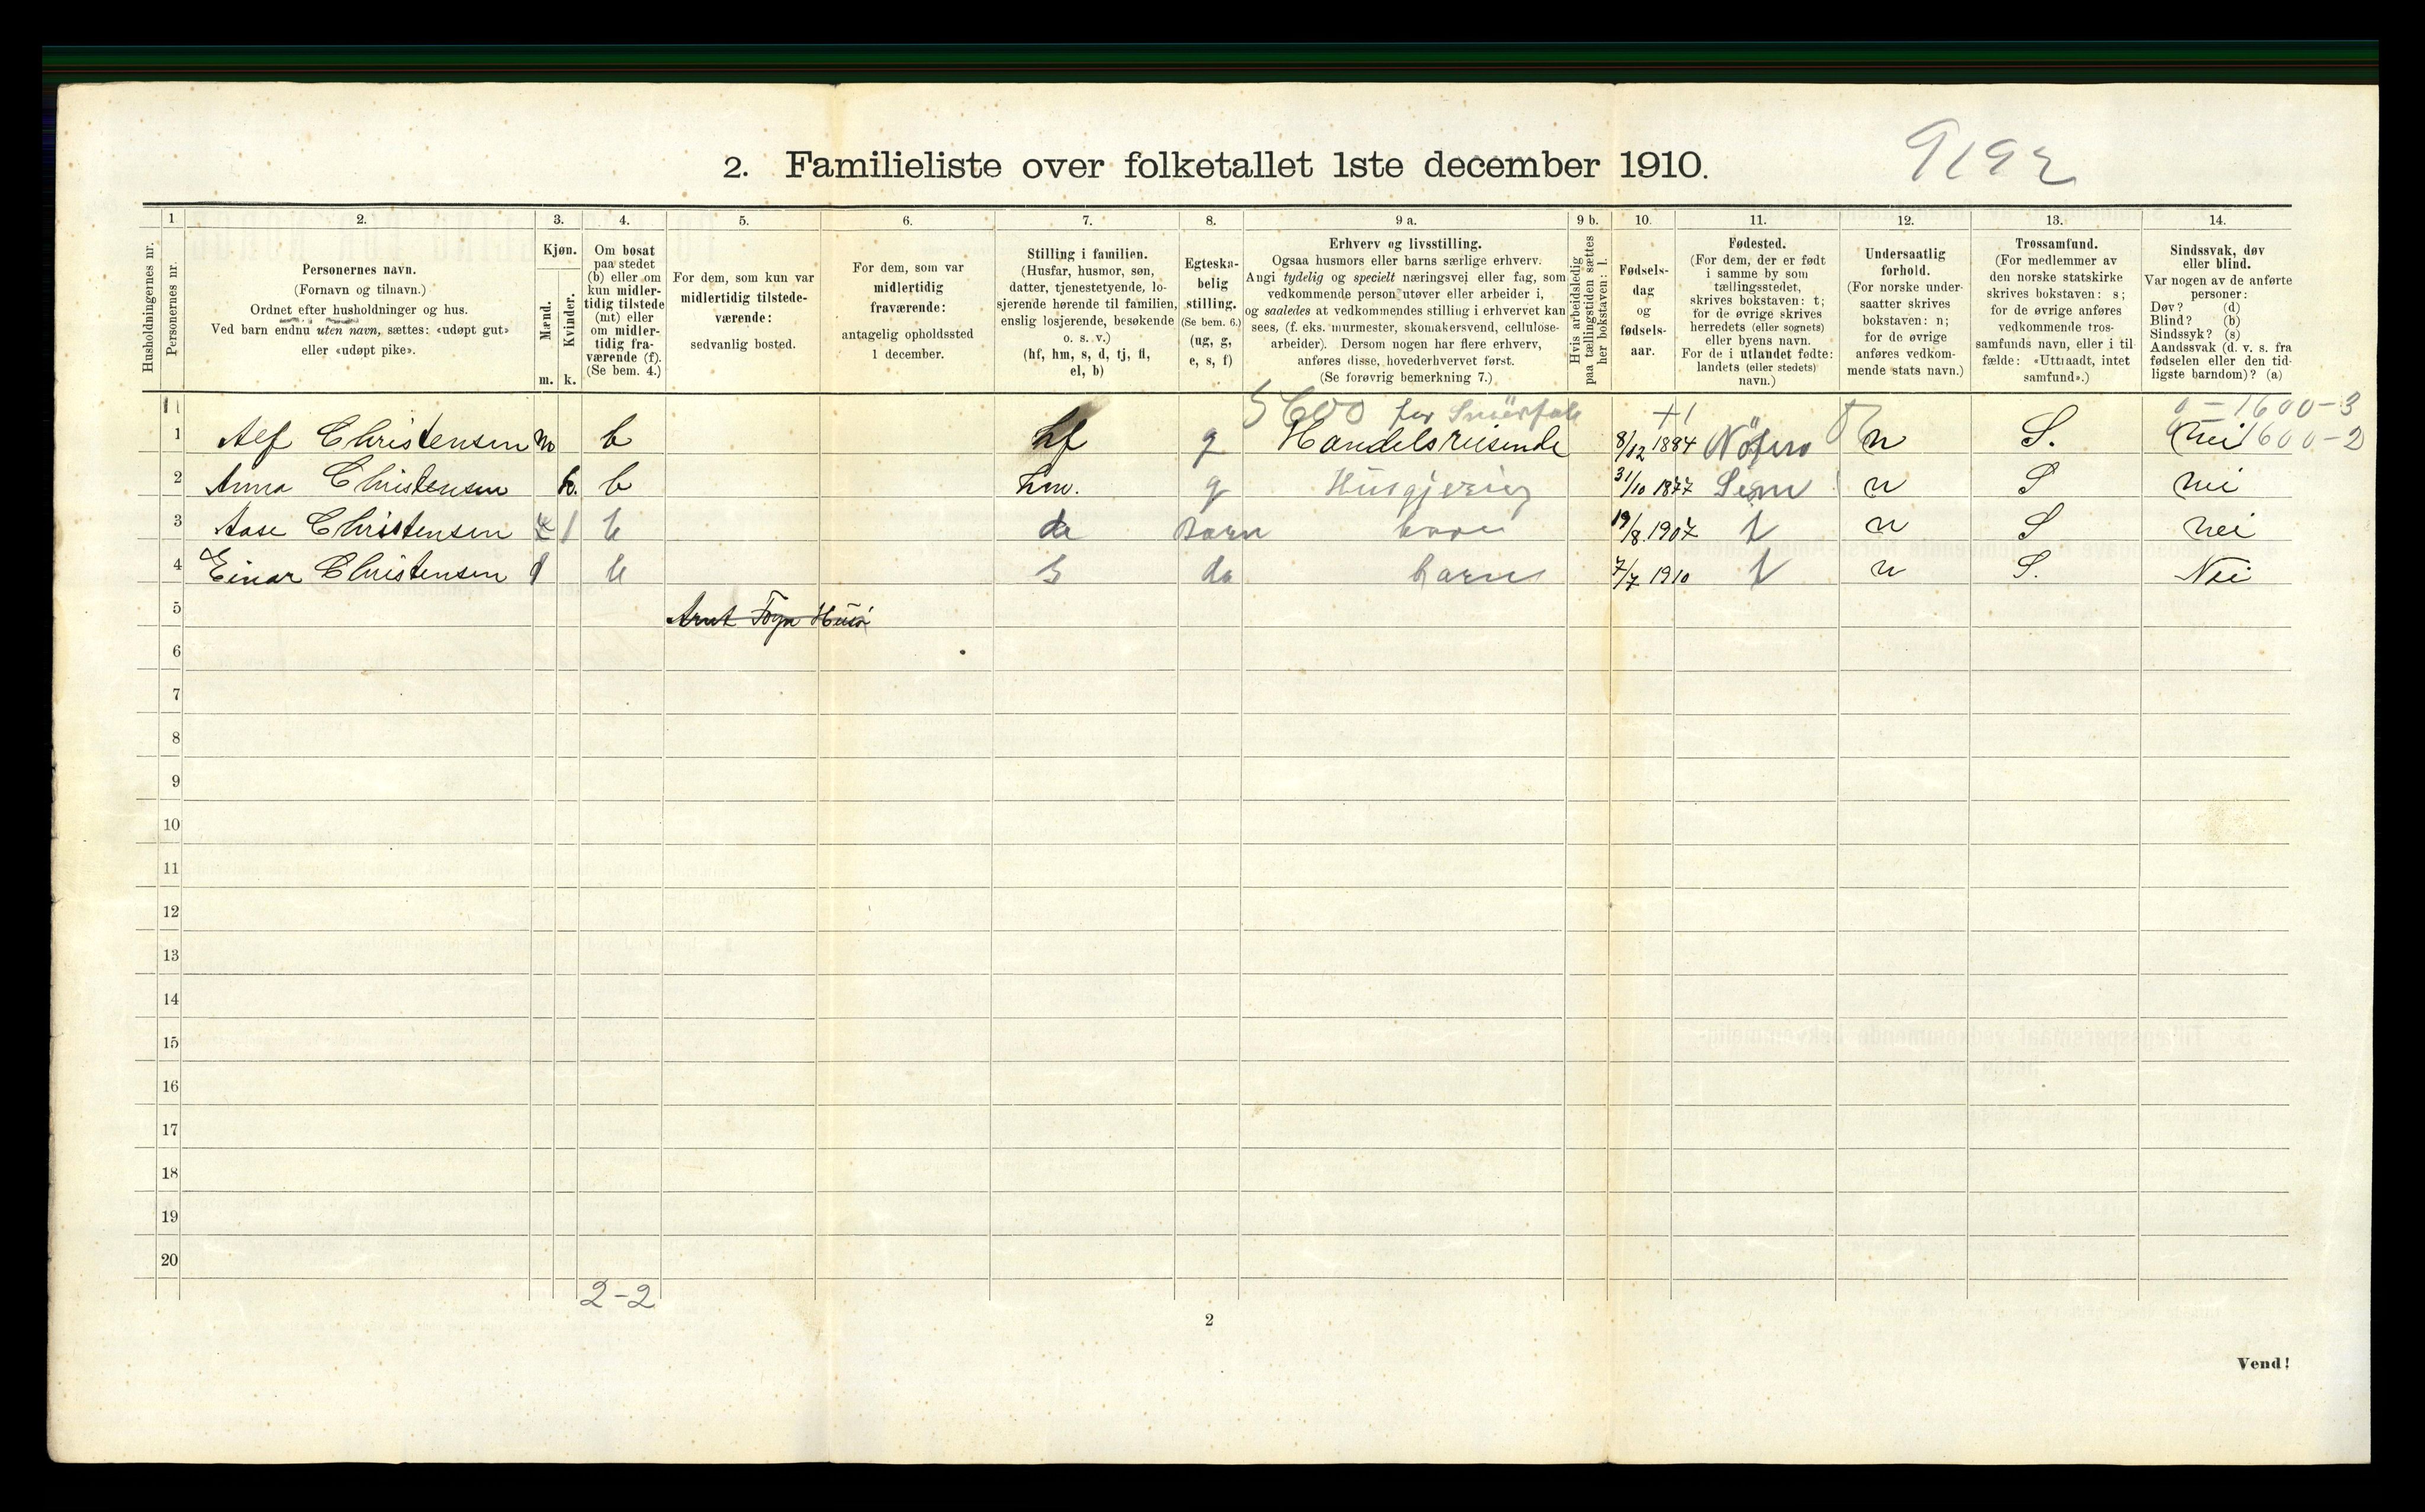 2. Familieliste over folketallet 1ste december 1910.
9192
1 2. 3. 4. 5. 6. 7. 8. 9 a. 9 b. 10. 11. 12. 13. 14.
Husholdningernes nr.
Personernes nr.
Personernes navn.
(Fornavn og tilnavn.)
Ordnet efter husholdninger og hus.
Ved barn endnu uten navn, sættes: «udøpt gut»
eller «udøpt pike».
Kjøn.
Mænd.
Kvinder.
m. k.
Om bosat
paa stedet
(b) eller om
kun midler-
tidig tilstede
(mt) eller
om midler-
tidig fra-
værende (f).
(Se bem. 4.)
For dem, som kun var
midlertidig tilstede-
værende:
sedvanlig bosted.
For dem, som var
midlertidig
fraværende:
antagelig opholdssted
1 december.
Stilling i familien.
(Husfar, husmor, søn,
datter, tjenestetyende, lo-
sjerende hørende til familien,
enslig losjerende, besøkende
o. s. v.)
(hf, hm, s, d, tj, fl,
el, b)
Egteska-
belig
stilling.
(Se bem. 6.)
(ug, g,
e, s, f)
Erhverv og livsstilling.
Ogsaa husmors eller barns særlige erhverv.
Angi tydelig og specielt næringsvei eller fag, som
vedkommende person utøver eller arbeider i,
og saaledes at vedkommendes stilling i erhvervet kan
sees, (f. eks. murmester, skomakersvend, cellulose-
arbeider). Dersom nogen har flere erhverv,
anføres disse, hovederhvervet først.
(Se forøvrig bemerkning 7.)
Hvis arbeidsledig
paa tællingstiden sættes
her bokstaven: l.
Fødsels-
dag
og
fødsels-
aar.
Fødested.
(For dem, der er født
i samme by som
tællingsstedet,
skrives bokstaven: t;
for de øvrige skrives
herredets (eller sognets)
eller byens navn.
For de i utlandet fødte:
landets (eller stedets)
navn.)
Undersaatlig
forhold.
(For norske under-
saatter skrives
bokstaven: n;
for de øvrige
anføres vedkom-
mende stats navn.)
Trossamfund.
(For medlemmer av
den norske statskirke
skrives bokstaven: s;
for de øvrige anføres
vedkommende tros-
samfunds navn, eller i til-
fælde: «Uttraadt, intet
samfund».)
Sindssvak, døv
eller blind.
Var nogen av de anførte
personer:
Døv? (d)
Blind? (b)
Sindssyk? (s)
Aandssvak (d. v. s. fra
fødselen eller den tid-
ligste barndom)? (a)
5600 for +1 0-1600-3
1 Alf Christensen m b hf g Handelsreisende 8/12 1884 Nötero n S. nei 1600-2
2 Anna Christensen k. b hm. g Husgjering 31/10 1877 Sem n S nei
3 Aase Christensen 1 b d Barn barn 19/8 1907 t n S nei
4 Einar Christensen 1 b s do barn 7/7 1910 t n S. Nei
5 Arnt Foyn Husö
6
7
8
9
10
11
12
13
14
15
16
17
18
19
20
2-2
2
Vend!